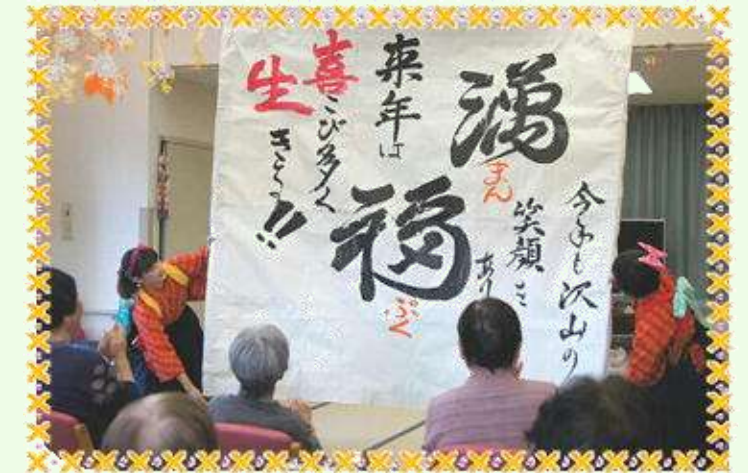 今年も沢山の
笑顔を
あり
満
まん
福
ぷく
来年は
喜こび多く
生きよう!!